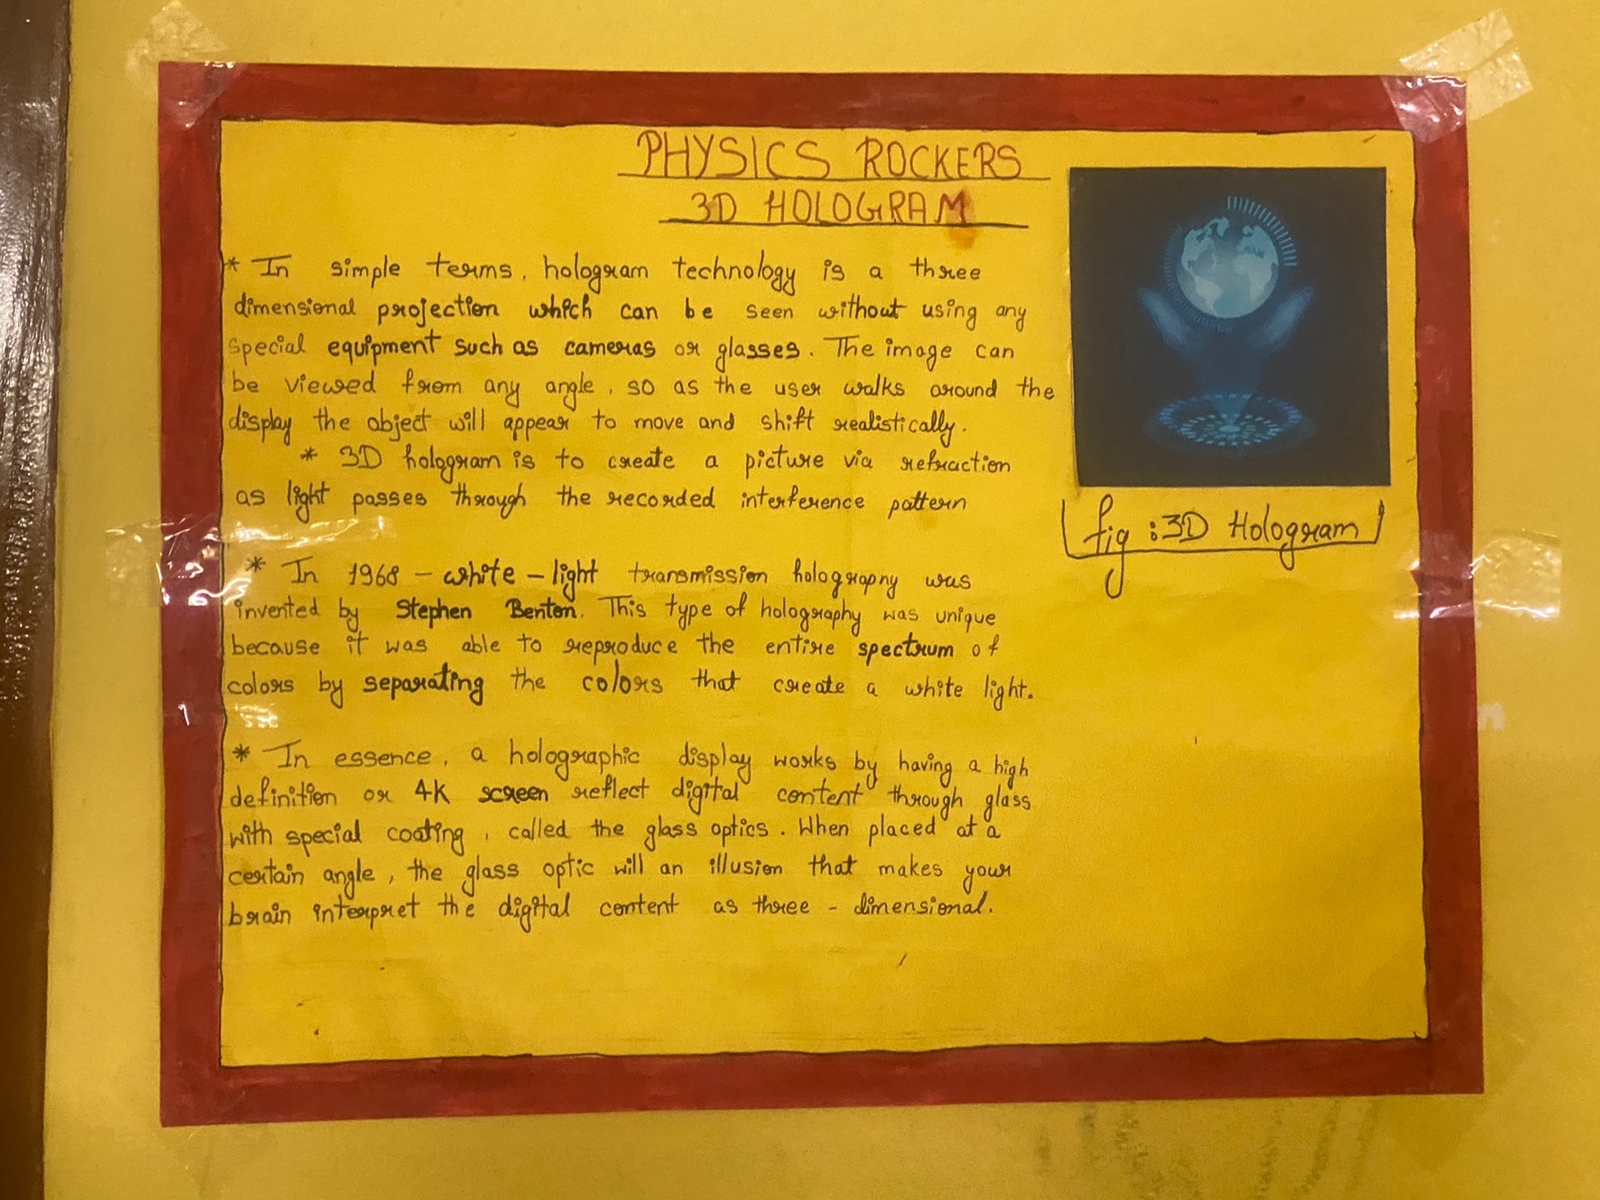 PHYSICS ROCKERS
3D HOLOGRAM
* In simple terms, hologram technology is a three
dimensional projection which can be seen without using any
special equipment such as cameras or glasses. The image can
be viewed from any angle, so as the user walks around the
display the object will appear to move and shift realistically.
* 3D hologram is to create a picture via refraction
as light passes through the recorded interference pattern
fig : 3D Hologram
* In 1968 - white - light transmission holograpny was
invented by Stephen Benton. This type of holography was unique
because it was able to reproduce the entire spectrum of
colors by separating the colors that create a white light.
* In essence, a holographic display works by having a high
definition or 4K screen reflect digital content through glass
with special coating, called the glass optics. When placed at a
certain angle, the glass optic will an illusion that makes your
brain interpret the digital content as three - dimensional.